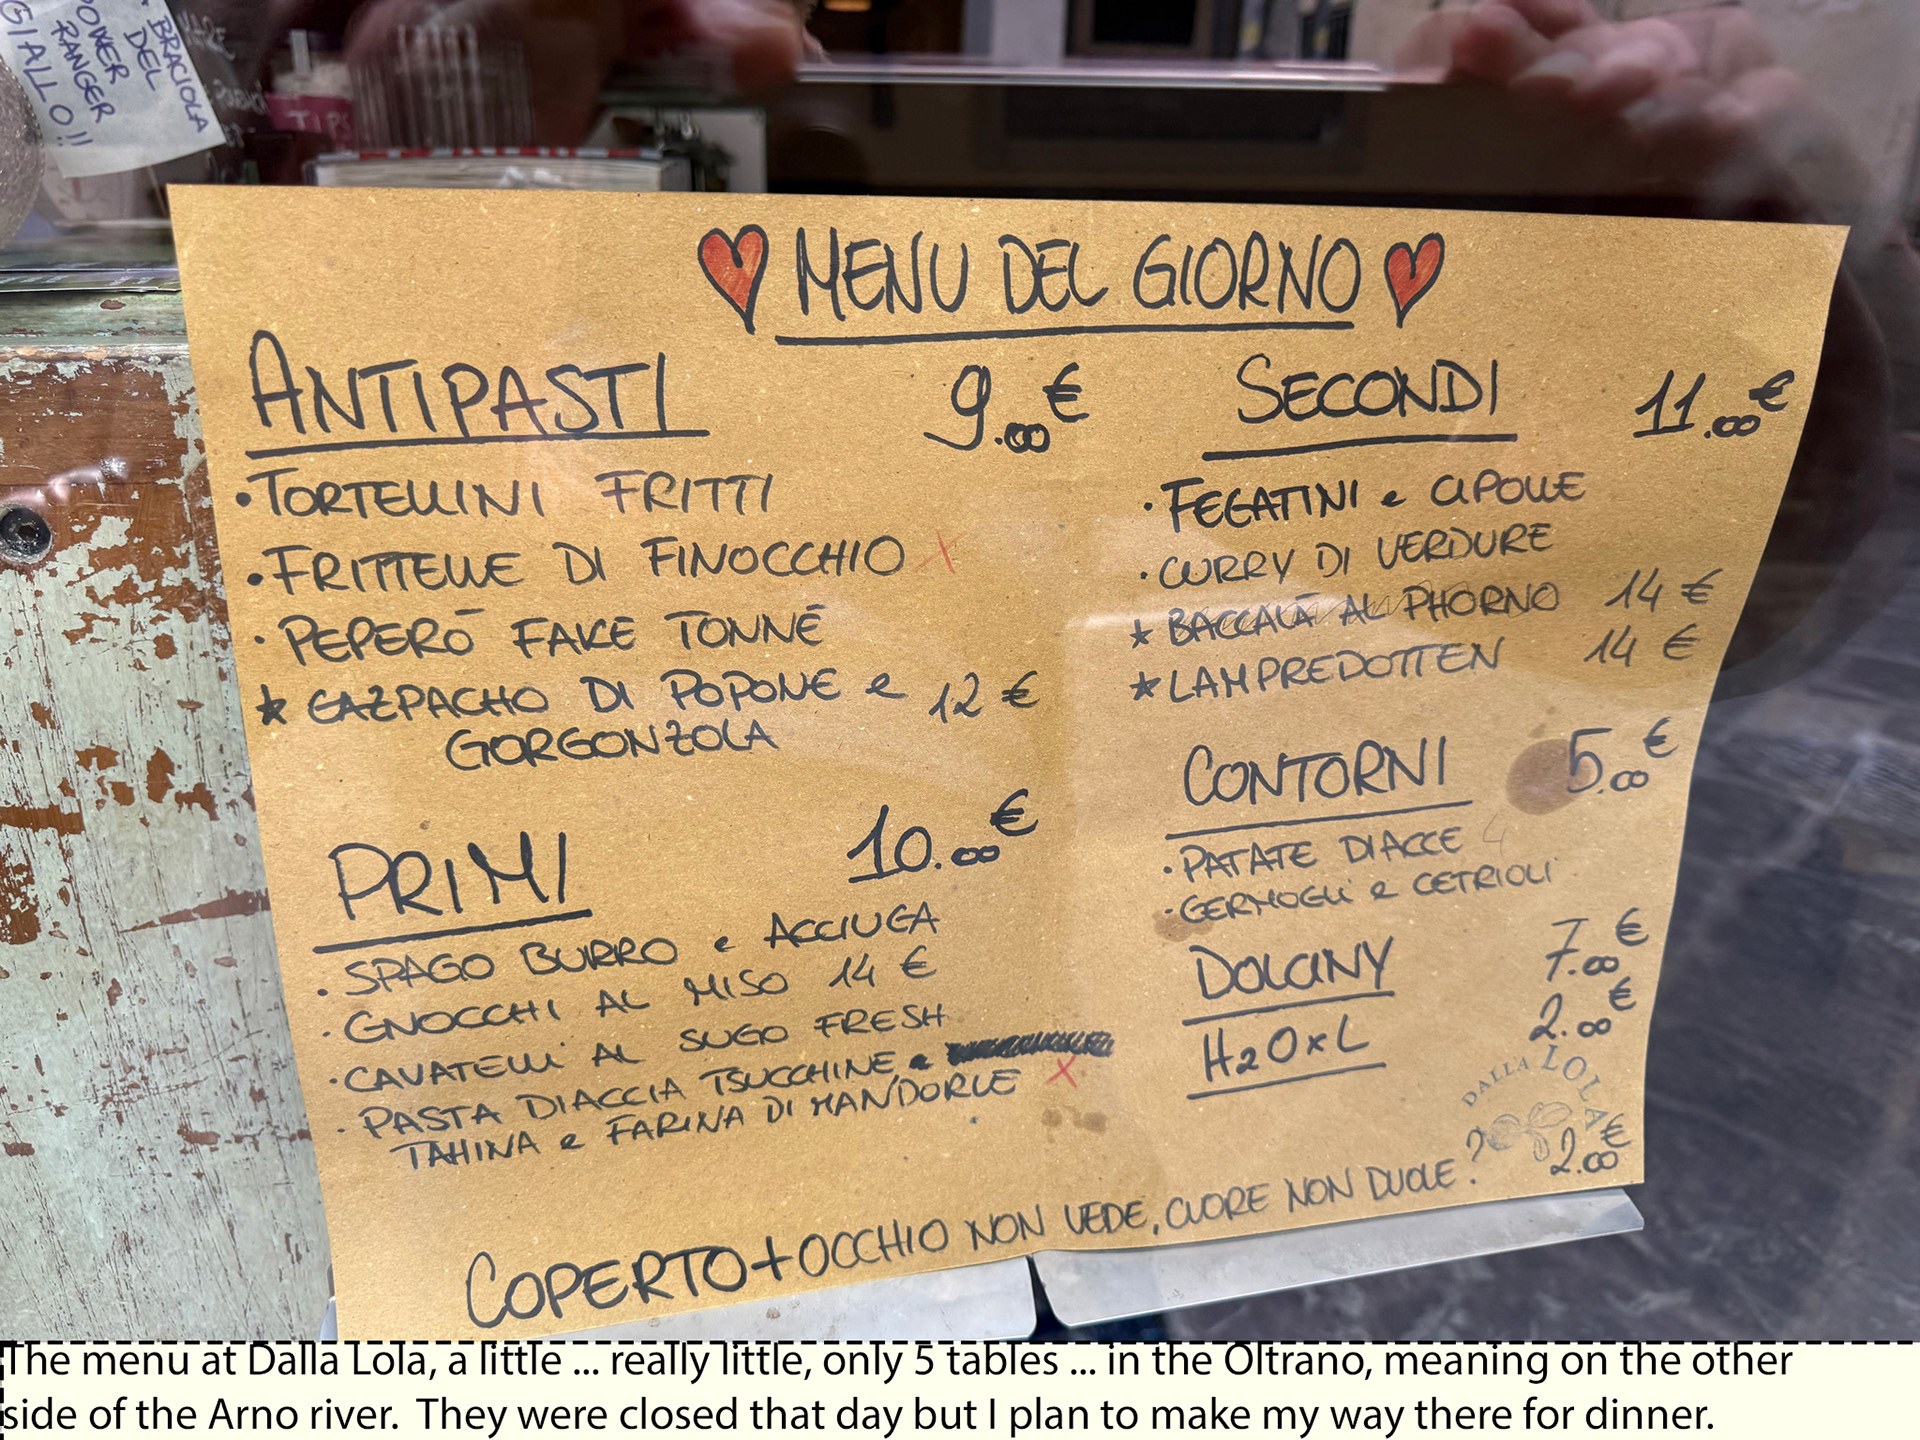 BRACIOLA
DEL
POWER
RANGER
GIALLO!!
TIPS
MENU DEL GIORNO
ANTIPASTI 9.00€
• TORTELLINI FRITTI
• FRITTELLE DI FINOCCHIO X
• PEPERŌ FAKE TONNĒ
★ GAZPACHO DI POPONE e 12 €
GORGONZOLA
PRIMI 10.00€
• SPAGO BURRO e ACCIUGA
• GNOCCHI AL MISO 14 €
• CAVATELLI AL SUGO FRESH
• PASTA DIACCIA TSUCCHINE e
TAHINA e FARINA DI MANDORLE X
SECONDI 11.00€
• FEGATINI e CIPOLLE
• CURRY DI VERDURE
★ BACCALÀ AL PHORNO 14 €
★ LAMPREDOTTEN 14 €
CONTORNI 5.00€
• PATATE DIACCE
• GERMOGLI e CETRIOLI
DOLCINY 7.00€
H2OxL 2.00€
DALLA LOLA
COPERTO + OCCHIO NON VEDE, CUORE NON DUOLE. 2.00€
The menu at Dalla Lola, a little ... really little, only 5 tables ... in the Oltrano, meaning on the other
side of the Arno river. They were closed that day but I plan to make my way there for dinner.